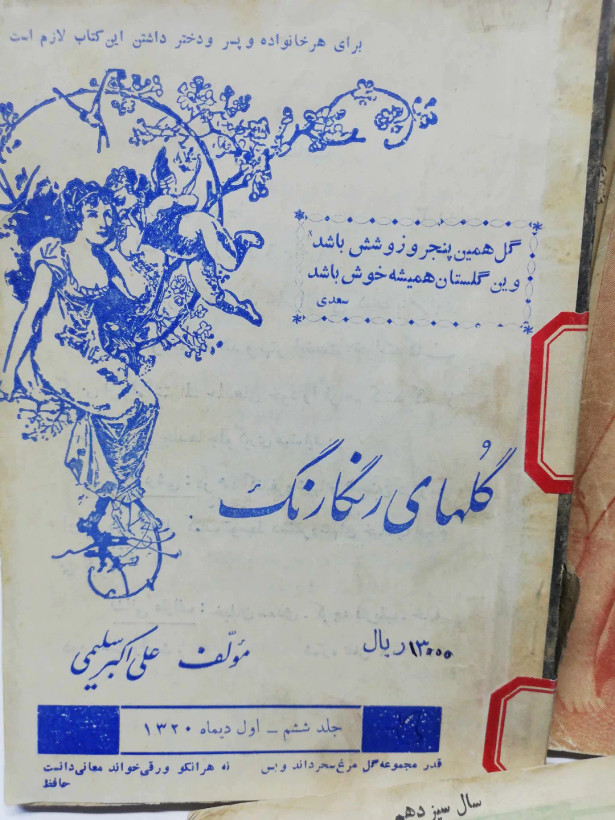 برای هر خانواده و پسر و دختر داشتن این کتاب لازم است
گل همین پنجروز و شش باشد
وین گلستان همیشه خوش باشد
سعدی
گلهای رنگارنگ
مؤلف علی اکبر سلیمی
ریال
جلد ششم - اول دیماه ۱۳۲۰
قدر مجموعه گل مرغ سحر داند و بس
نه هر آنکو ورقی خواند معانی دانست
حافظ
سال سیزدهم